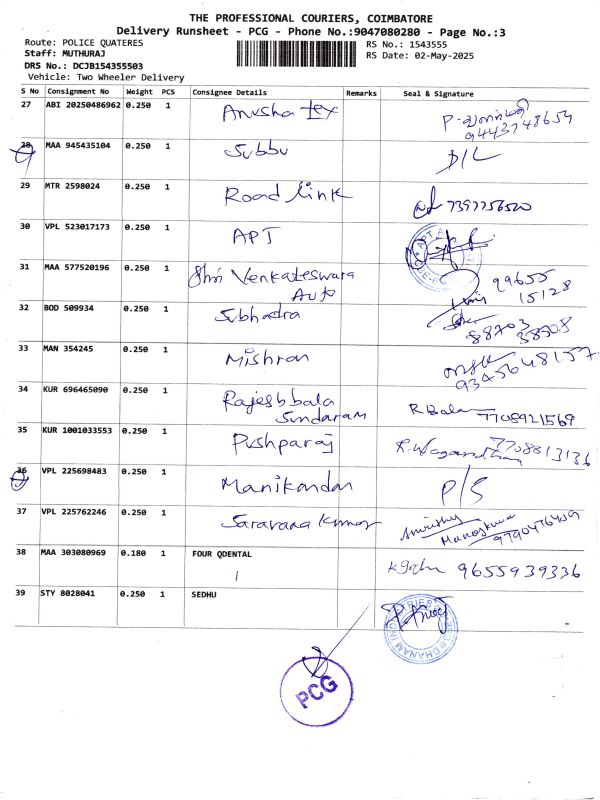 THE PROFESSIONAL COURIERS, COIMBATORE
Delivery Runsheet - PCG - Phone No.:9047080280 - Page No.:3
Route: POLICE QUATERES
RS No.: 1543555
Staff: MUTHURAJ
RS Date: 02-May-2025
DRS No.: DCJB154355503
Vehicle: Two Wheeler Delivery
S No Consignment No Weight PCS Consignee Details Remarks Seal & Signature
27 ABI 20250486962 0.250 1 Anusha tex
9443748654
28 MAA 945435104 0.250 1 Subbu D/L
29 MTR 2598024 0.250 1 Road Link 7397756520
30 VPL 523017173 0.250 1 APT
31 MAA 577520196 0.250 1 Shri Venkateswara
Auto
99655
15128
32 BOD 509934 0.250 1 Subhadra
88703
38508
33 MAN 354245 0.250 1 Mishran
9345648157
34 KUR 696465090 0.250 1 Rajesh bala
Sundaram
R Bala 7708921569
35 KUR 1001033553 0.250 1 Pushparaj
7708813136
36 VPL 225698483 0.250 1 Manikandan P/S
37 VPL 225762246 0.250 1 Saravana Kumar
9790476409
38 MAA 303080969 0.180 1 FOUR QDENTAL 9655939336
39 STY 8028041 0.250 1 SEDHU
PCG